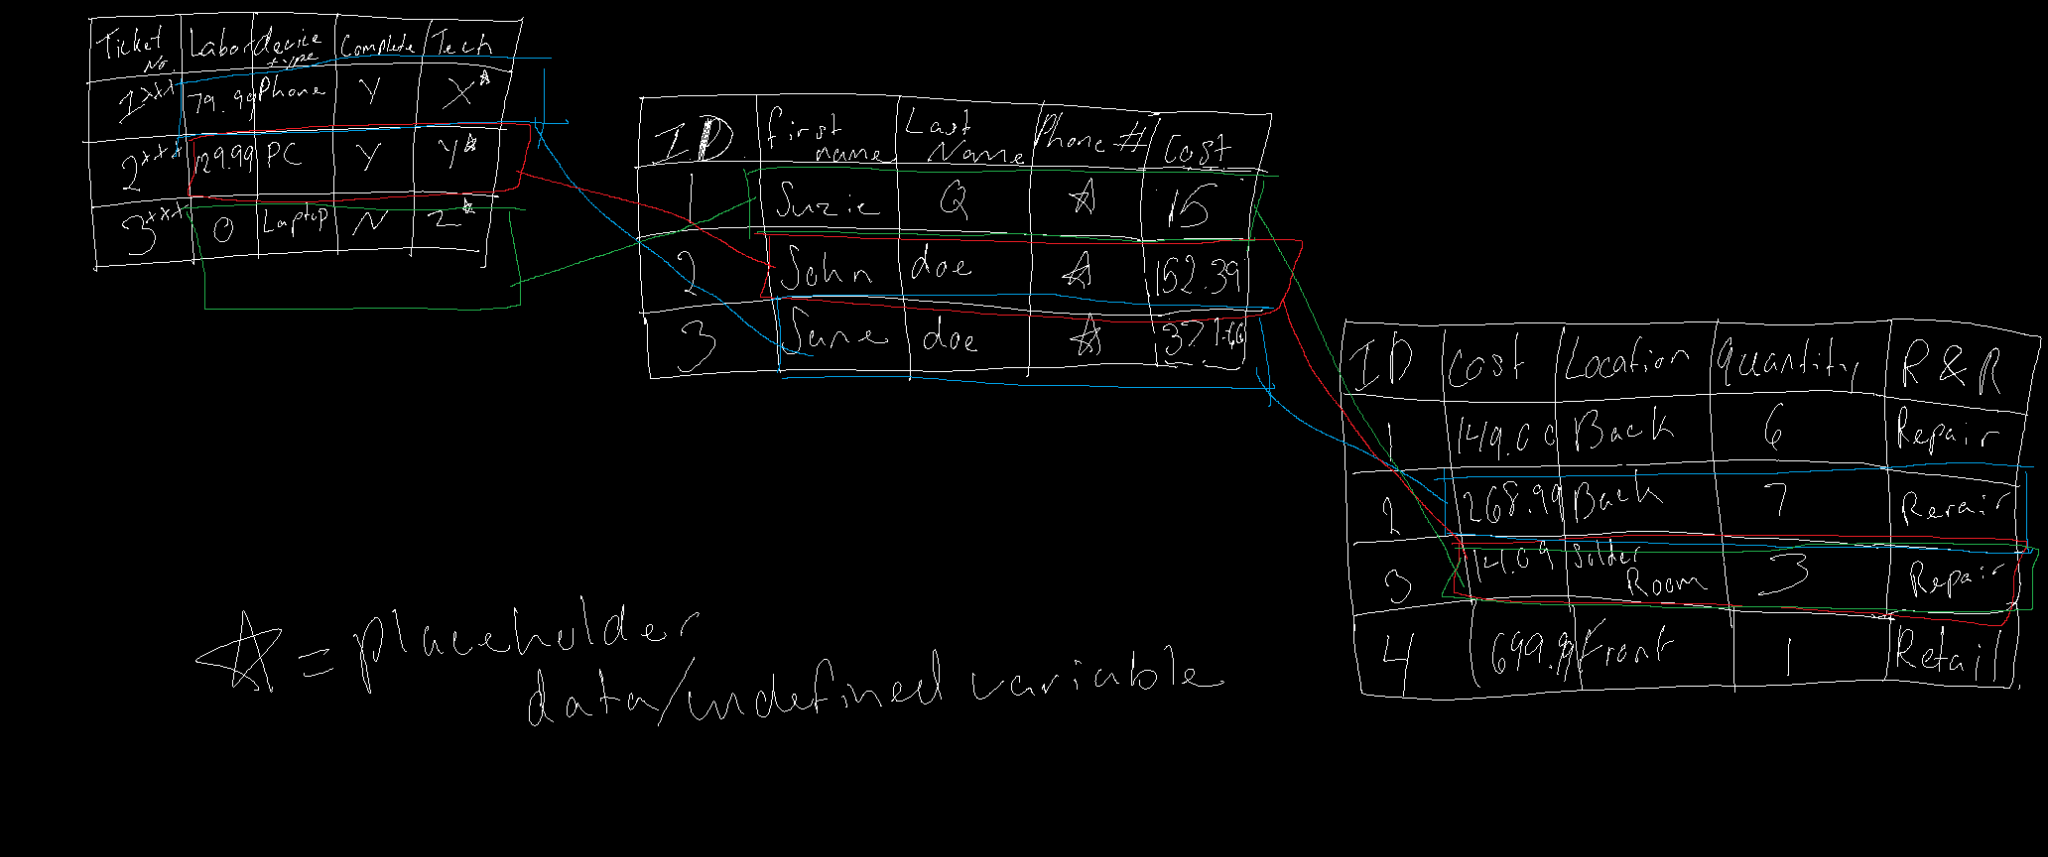 Ticket No. Labor device type Complete Tech
1xxx 79.99 Phone Y X☆
2xxx 129.99 PC Y Y☆
3xxx 0 Laptop N Z☆
ID first name Last Name Phone # Cost
1 Suzie Q ☆ 15
2 John doe ☆ 152.39
3 Jane doe ☆
ID Cost Location Quantity R & R
1 149.00 Back 6 Repair
2 268.99 Back 7 Repair
3 14.09 Solder Room 3 Repair
4 699.99 Front 1 Retail
☆ = placeholder
data/undefined variable